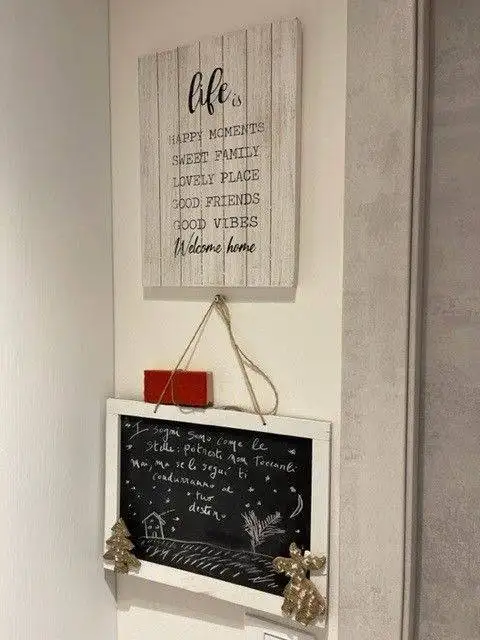 life is
HAPPY MOMENTS
SWEET FAMILY
LOVELY PLACE
GOOD FRIENDS
GOOD VIBES
Welcome home
I sogni sono come le
stelle: potresti non toccarli
mai, ma se li segui ti
condurranno al
tuo
destin